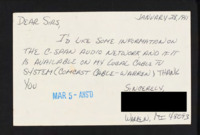 DEAR SIRS,
JANUARY 28, 1980
I'D LIKE SOME INFORMATION ON
THE C-SPAN AUDIO NETWORK AND IF IT
IS AVAILABLE ON MY LOCAL CABLE TV
SYSTEM (COMCAST CABLE - WARREN). THANK
YOU
SINCERELY,
MAR 5 -
WARREN, MI